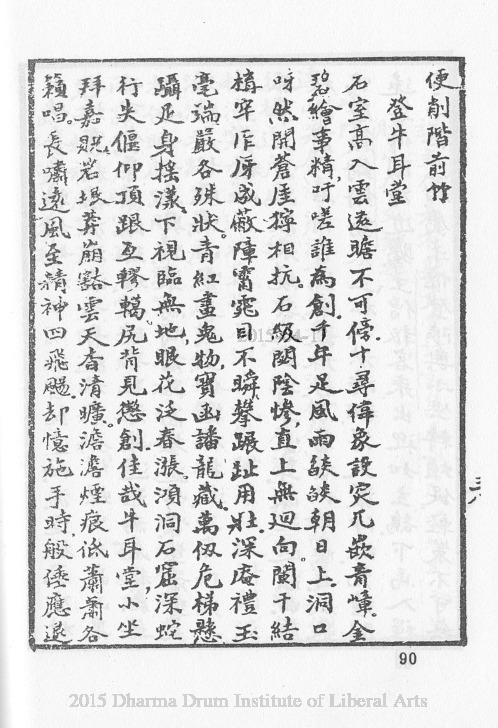 便削階前竹
登牛耳堂
石室高入雲遠瞻不可傍十尋偉象設突兀嵌青嶂金
碧繪事精吁嗟誰為創千年足風雨燄燄朝日上洞口
呀然開蒼厓擰相抗石飯閟陰慘直上無迴向闌干結
構牢厈厊成蔽障窗窕目不瞬攀蹑趾用壯深庵禮玉
毫端嚴各殊狀青紅畫鬼物寶函譒龍藏萬仞危梯懸
躡足身搖漾下視臨無地眼花泛春漲澒洞石窟深蛇
行失偃仰頂跟互轇轕尻背見懲創佳哉牛耳堂小坐
拜嘉貺岩垠莽崩豁雲天杳清曠澹澹煙痕低蕭蕭各
籟唱長嘯遠風至精神四飛颺却憶施手時般倕應退
三八
90
2015-04-1
2015 Dharma Drum Institute of Liberal Arts